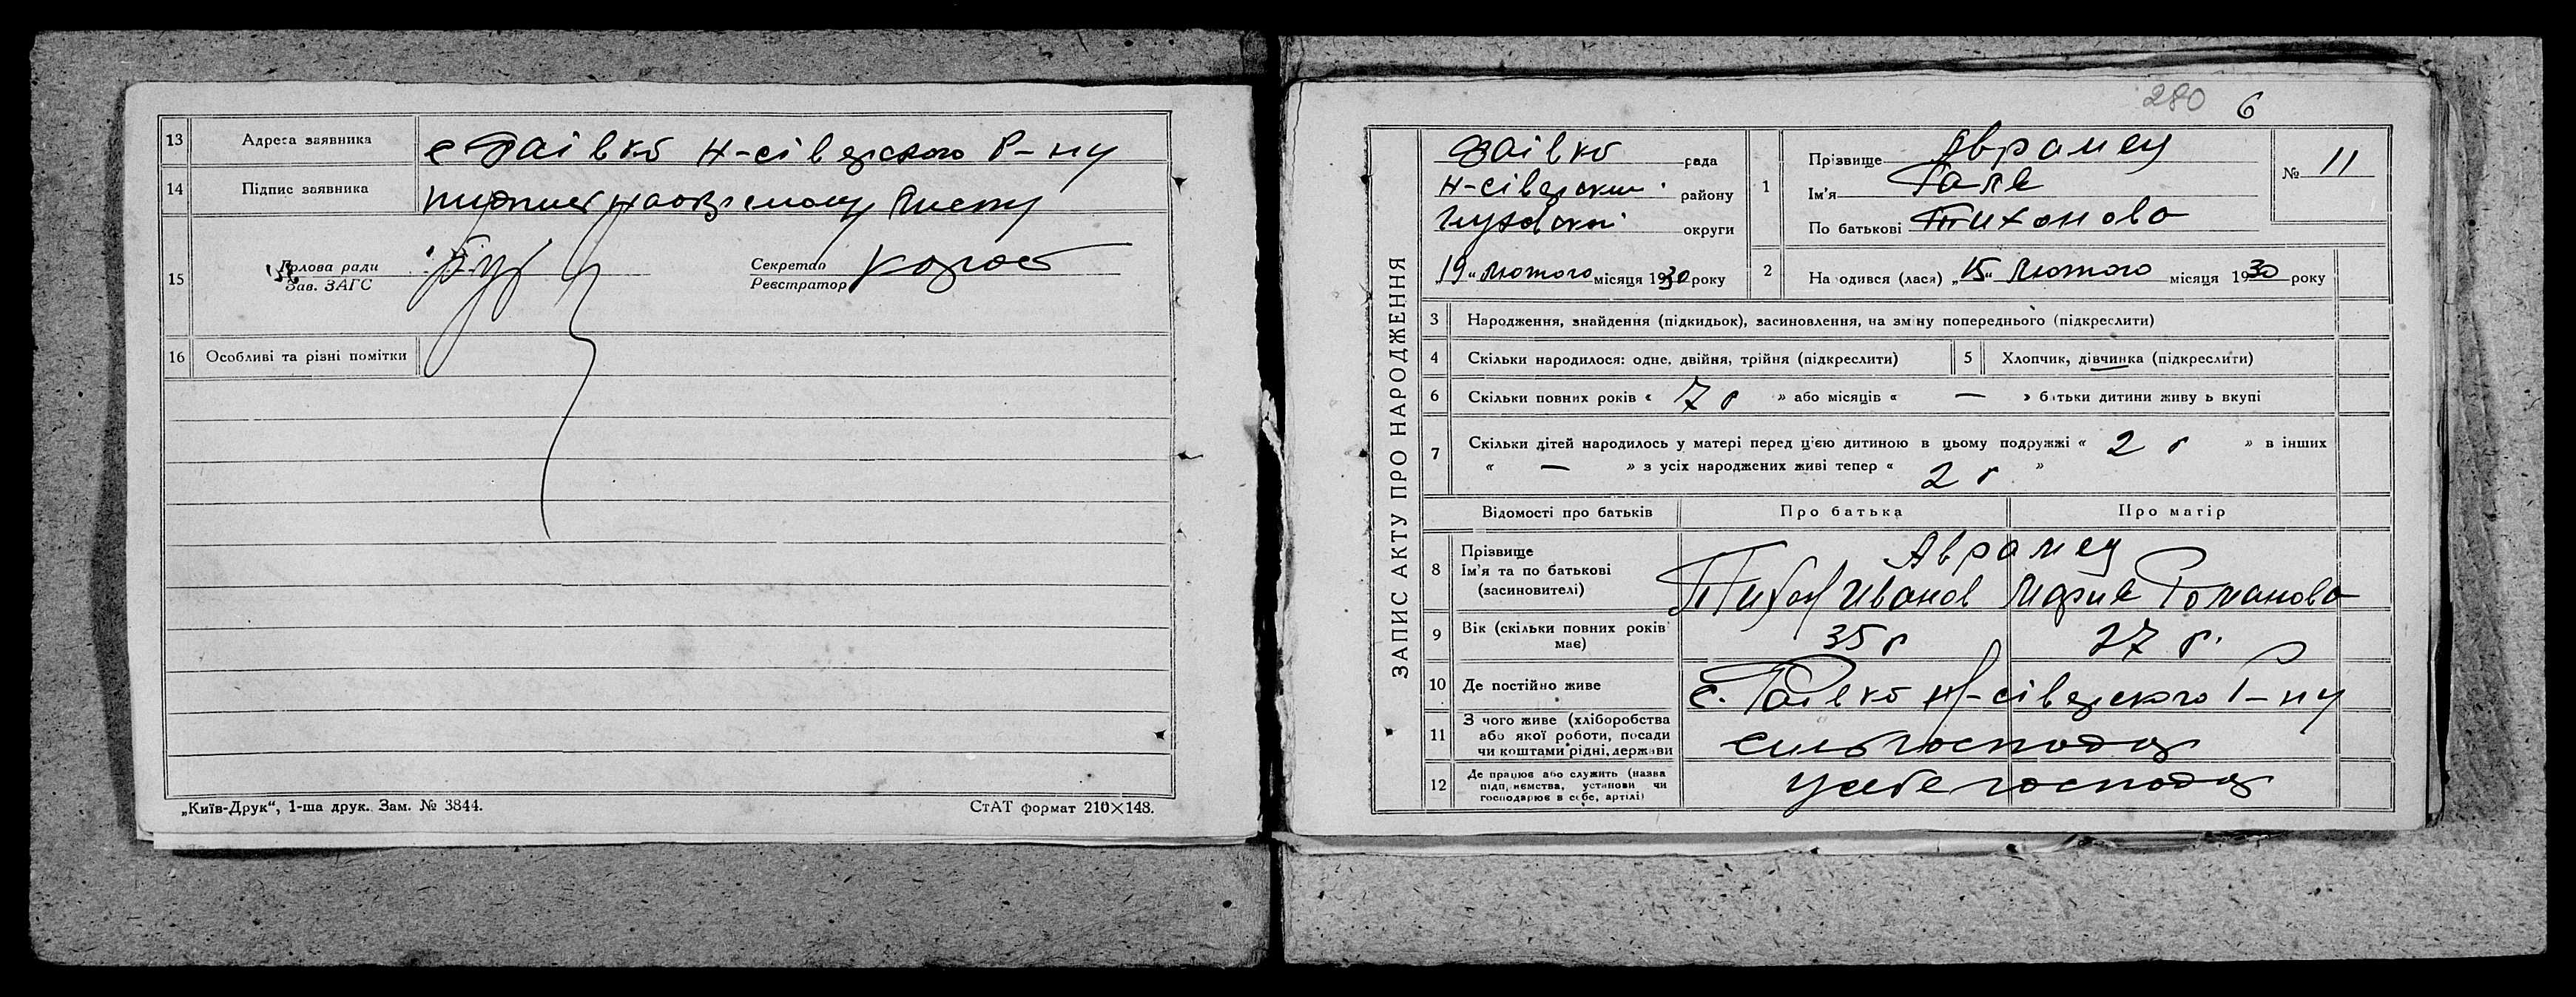 13 Адреса заявника с Гаівка Н-сіверского Р-ну
14 Підпис заявника
15 Голова ради
Зав. ЗАГС
Секретар
Реєстратор
16 Особливі та різні помітки
„Київ-Друк“, 1-ша друк. Зам. № 3844.
СтАТ формат 210×148.
280 6
ЗАПИС АКТУ ПРО НАРОДЖЕННЯ
рада
Н-сіверский району
округи
19 Лютого місяця 1930 року
1 Прізвище Аврамец
Ім'я Галя
По батькові Тихонова
№ 11
2 Народився (лася) „15“ Лютого місяця 1930 року
3 Народження, знайдення (підкидьок), засиновлення, на зміну попереднього (підкреслити)
4 Скільки народилося: одне, двійня, трійня (підкреслити)
5 Хлопчик, дівчинка (підкреслити)
6 Скільки повних років « 7 г » або місяців « — » батьки дитини живуть вкупі
7 Скільки дітей народилось у матері перед цією дитиною в цьому подружжі « 2 г » в інших
« — » з усіх народжених живі тепер « 2 г »
Відомості про батьків Про батька Про матір
8 Прізвище Аврамец
Ім'я та по батькові
(засиновителі) Тихон Иванов Мария Романова
9 Вік (скільки повних років
має) 35 г 27 г.
10 Де постійно живе с. Гаівка Н-сіверского Р-ну
11 З чого живе (хліборобства
або якої роботи, посади
чи коштами рідні, держави
12 Де працює або служить (назва
підприємства, установи чи
господарює в себе, артілі)